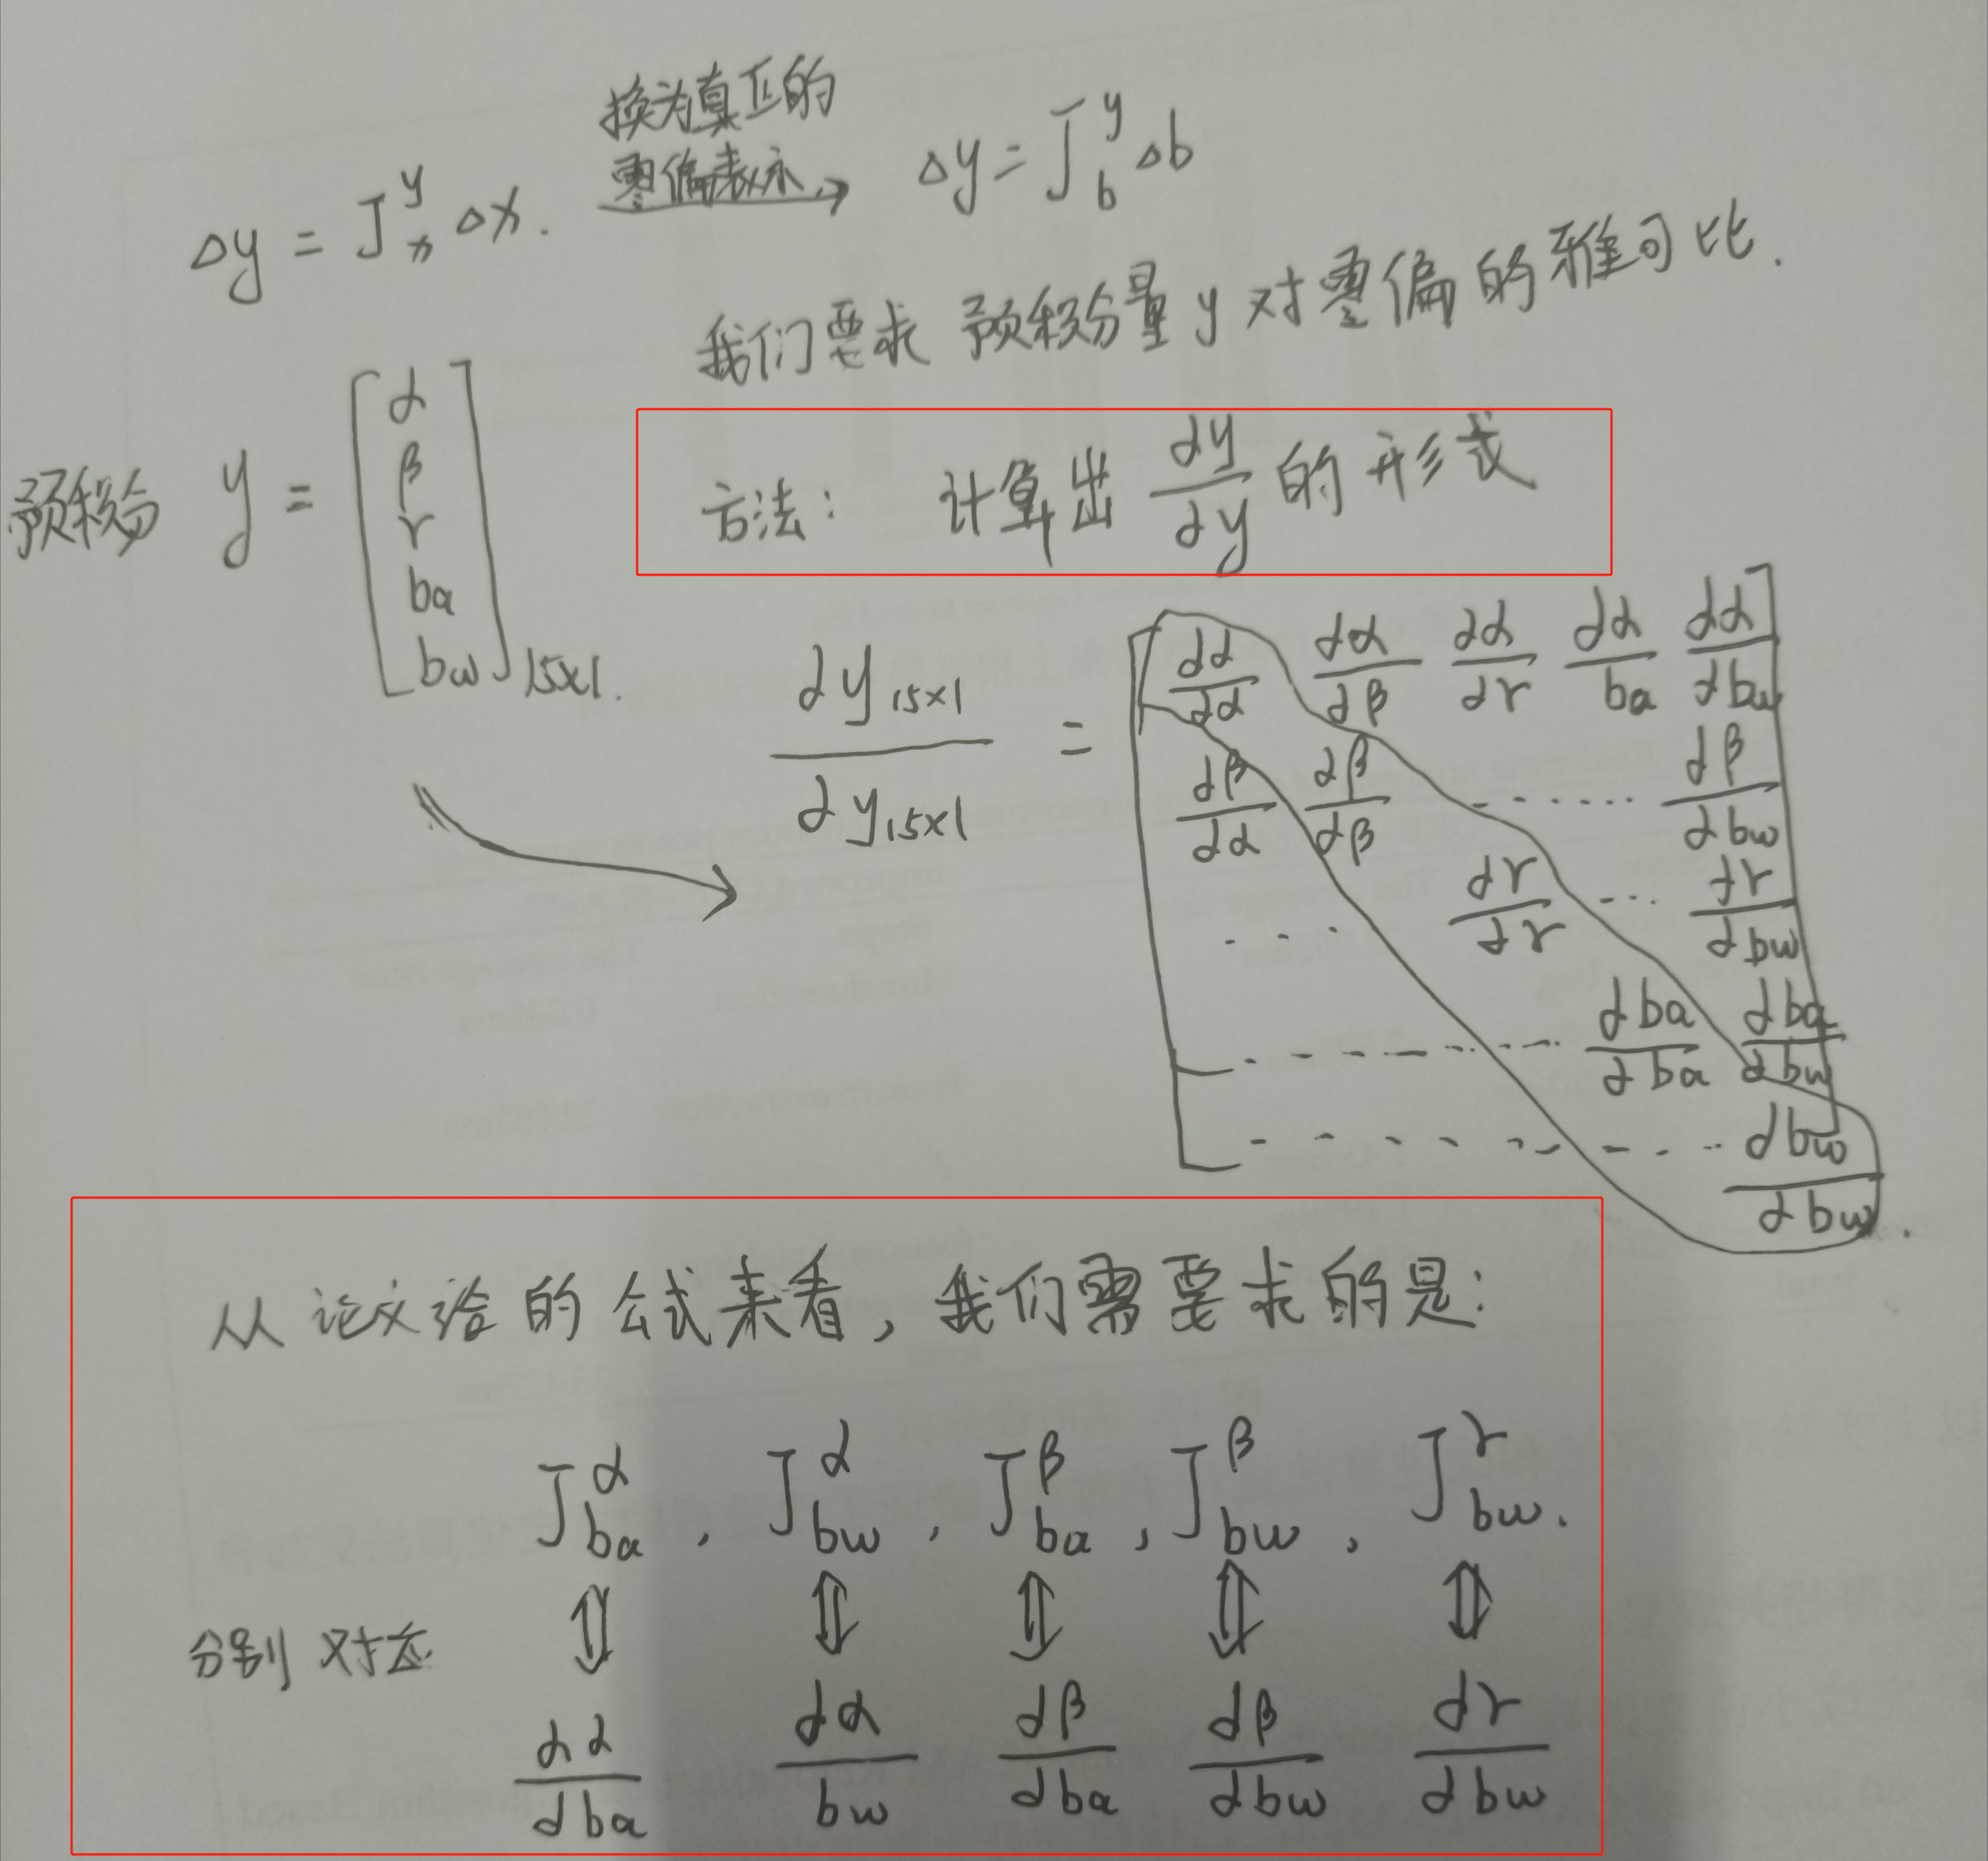 换为真正的
零偏表示
Δy = J_x^y Δx. → Δy = J_b^y Δb
我们要求 预积分量 y 对零偏的雅可比.
预积分 y = [α β γ ba bw]15x1.
方法: 计算出 dy/dy 的形式
dy15x1/dy15x1 = [dα/dα dα/dβ dα/dγ dα/ba dα/dbw
dβ/dα dβ/dβ ...... dβ/dbw
... dγ/dγ ... dγ/dbw
...... dba/dba dba/dbw
...... dbw/dbw].
从论文给的公式来看, 我们需要求的是:
J_ba^α , J_bw^α , J_ba^β , J_bw^β , J_bw^γ .
分别对应 ⇕ ⇕ ⇕ ⇕ ⇕
dα/dba dα/bw dβ/dba dβ/dbw dγ/dbw